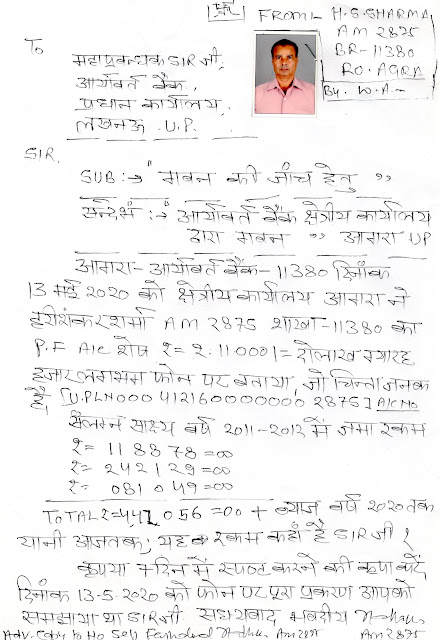 FROM:- H.S. SHARMA
AM 2875
BR-11380
RO. AGRA
By. W.A.-
To
महाप्रबन्धक SIR जी,
आर्यावर्त बैंक,
प्रधान कार्यालय,
लखनऊ U.P.
SIR.
SUB:→ " गवन की जाँच हेतु "
सन्दर्भ :→ " आर्यावर्त बैंक क्षेत्रीय कार्यालय
द्वारा गवन " आगरा UP
आगरा- आर्यावर्त बैंक-11380 दिनांक
13 मई 2020 को क्षेत्रीय कार्यालय आगरा ने
हरीशंकर शर्मा AM 2875 शाखा-11380 का
P.F A/C शेष रु= 2.11000/= दो लाख ग्यारह
हजार लगभग फोन पर बताया, जो चिन्ताजनक
है, [UPLN000412160000000 2875] A/C No
संलग्न साक्ष्य वर्ष 2011-2012 में जमा रकम
रु= 118878=00
रु= 242129=00
रु= 081049=00
TOTAL रु=442056=00 + ब्याज वर्ष 2020 तक
यानी आजतक, यह रकम कहाँ है SIR जी ?
कृपया 7 दिन में स्पष्ट करने की कृपा करें
दिनांक 13-5-2020 को फोन पर पूरा प्रकरण आपको
समझाया था SIR जी. सधन्यवाद भवदीय
Adv. Copy to Ho AM 2875